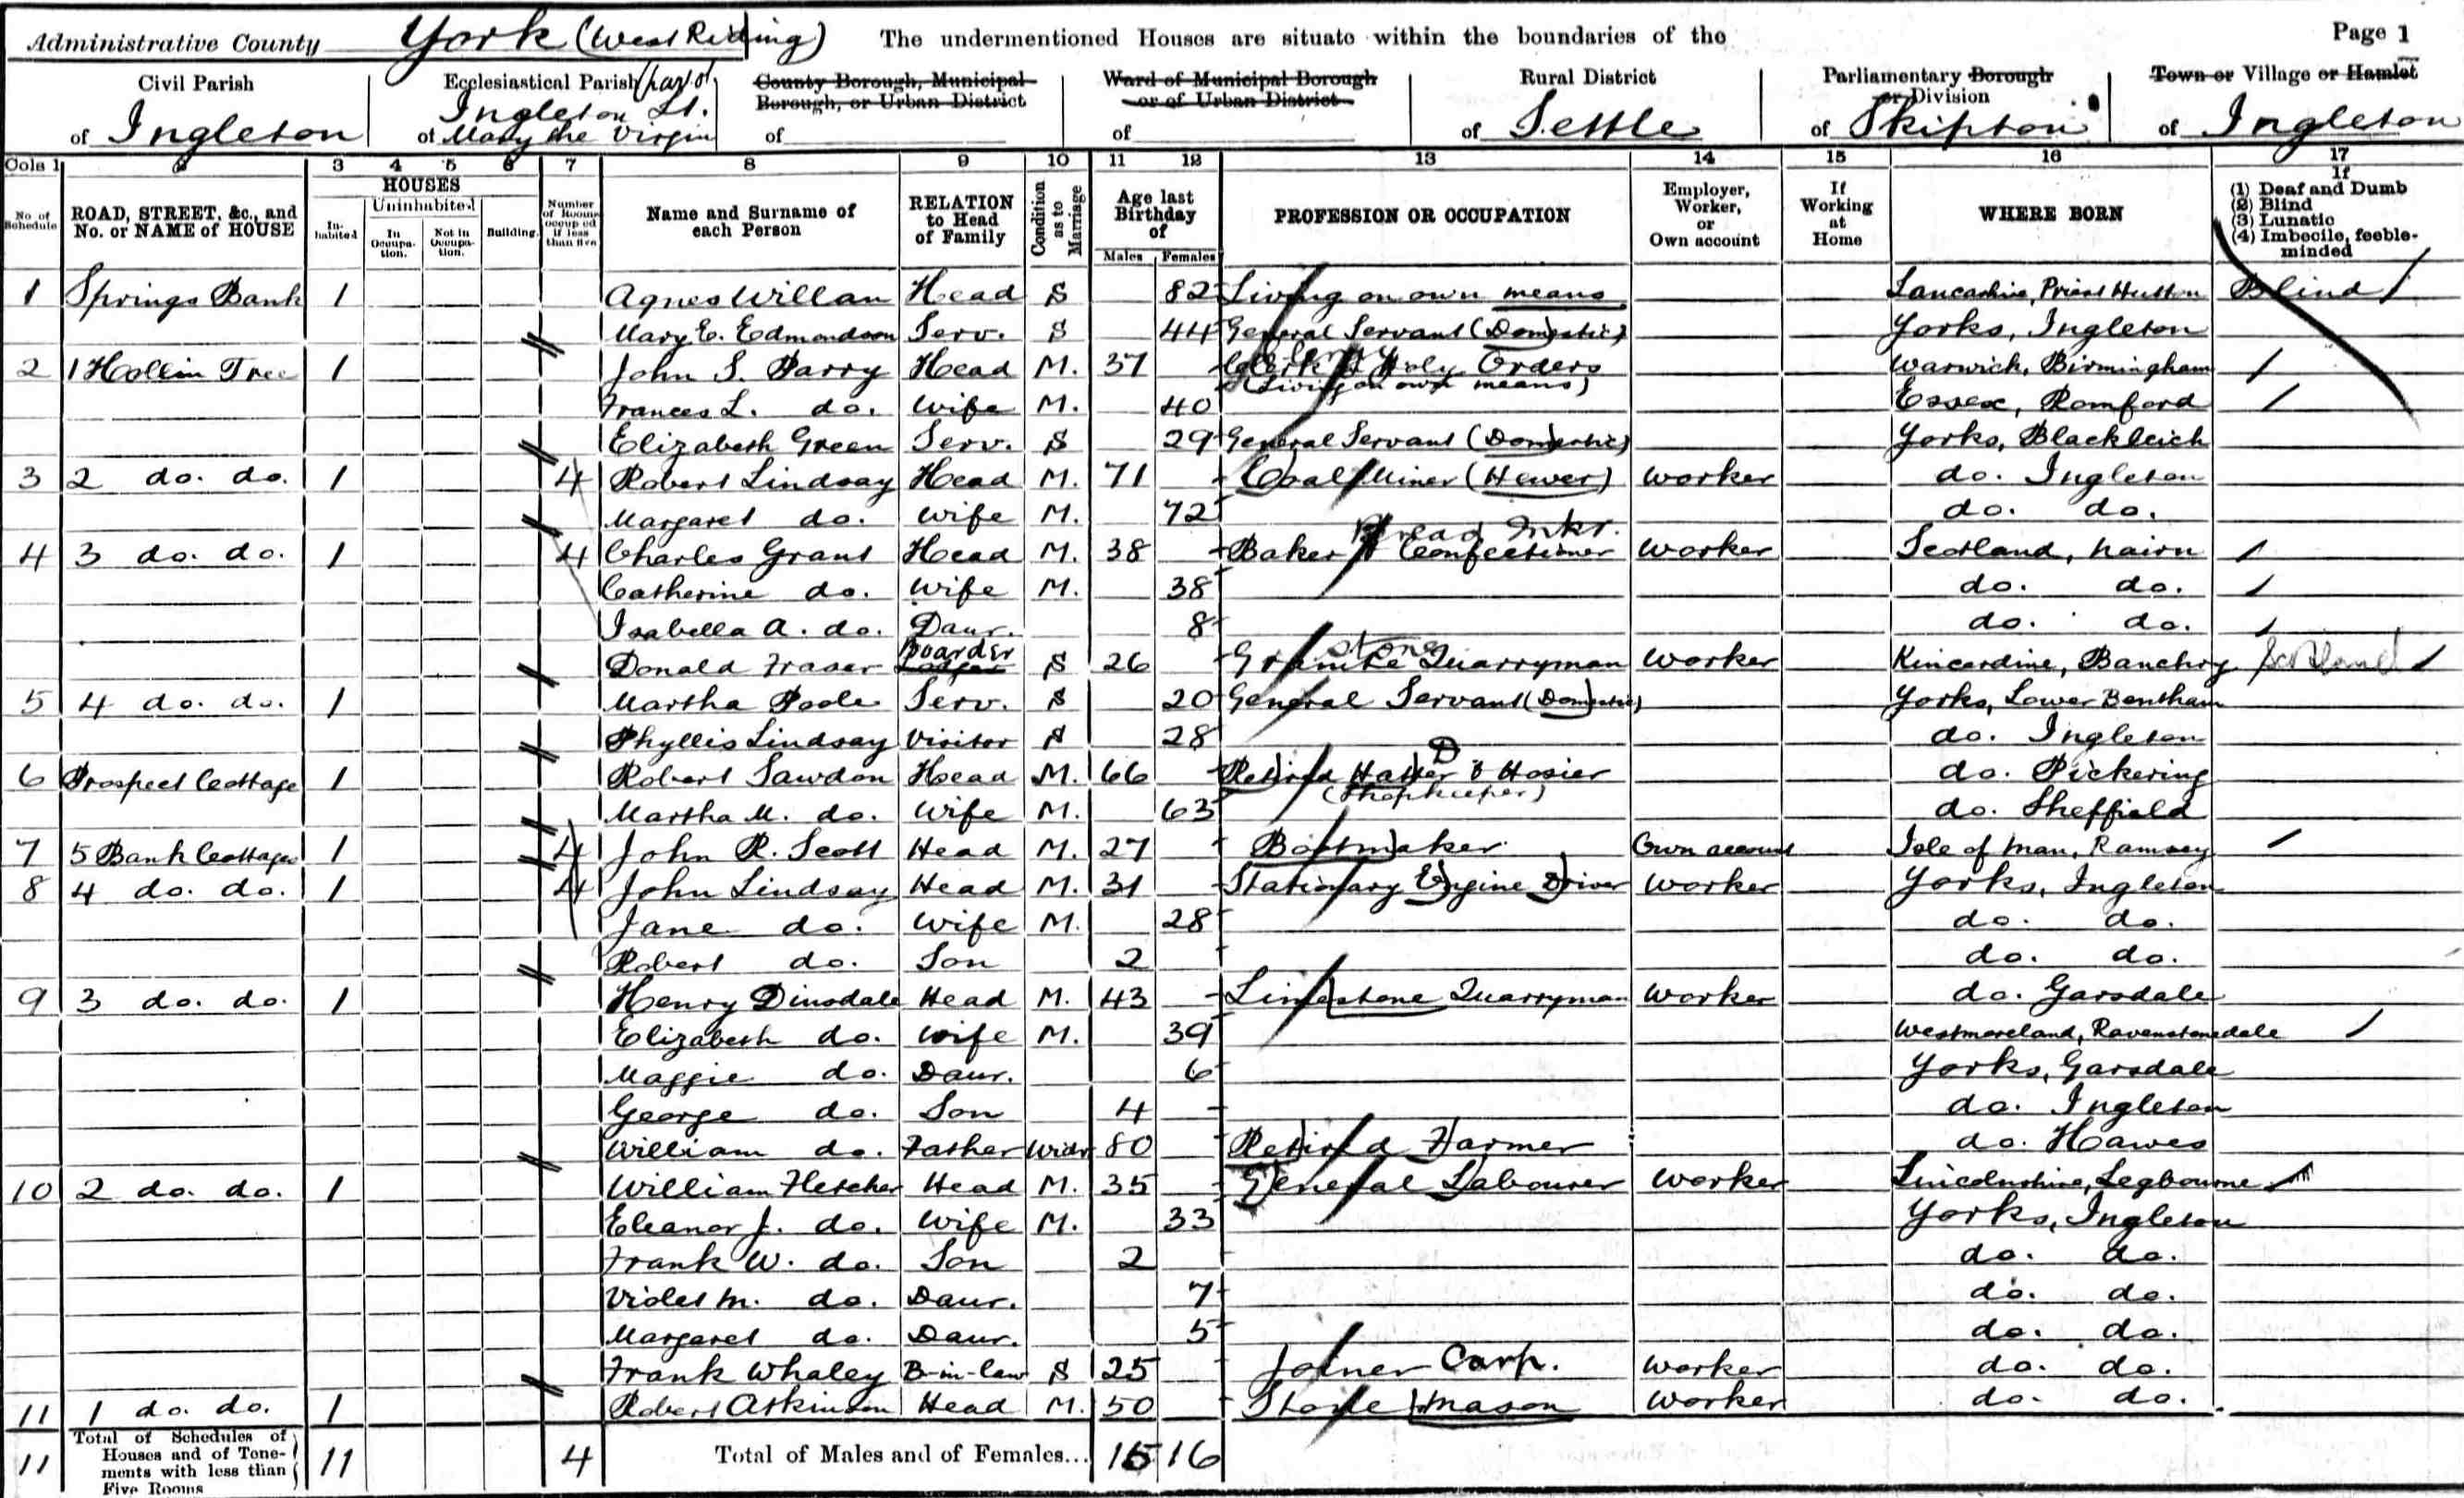 Administrative County York (West Riding) The undermentioned Houses are situate within the boundaries of the Page 1
Civil Parish of Ingleton
Ecclesiastical Parish (part of) of Ingleton St. Mary the Virgin
County Borough, Municipal Borough, or Urban District of
Ward of Municipal Borough or of Urban District of
Rural District of Settle
Parliamentary Borough or Division of Skipton
Town or Village or Hamlet of Ingleton
Cols 1 2 3 4 5 6 7 8 9 10 11 12 13 14 15 16 17
No of Schedule
ROAD, STREET, &c., and No. or NAME of HOUSE
HOUSES
Inhabited
Uninhabited
In Occupation.
Not in Occupation.
Building.
Number of Rooms occupied if less than five
Name and Surname of each Person
RELATION to Head of Family
Condition as to Marriage
Age last Birthday of
Males Females
PROFESSION OR OCCUPATION
Employer, Worker, or Own account
If Working at Home
WHERE BORN
If
(1) Deaf and Dumb
(2) Blind
(3) Lunatic
(4) Imbecile, feeble-minded
1 Springs Bank 1 Agnes Willan Head S 82 Living on own means Lancashire, Priest Hutton Blind
Mary E. Edmondson Serv. S 44 General Servant (Domestic) Yorks, Ingleton
2 1 Hollin Tree 1 John S. Parry Head M. 37 Clerk Holy Orders Warwick, Birmingham
(Living on own means)
Frances L. do. Wife M. 40 Essex, Romford
Elizabeth Green Serv. S 29 General Servant (Domestic) Yorks,
3 2 do. do. 1 4 Robert Lindsay Head M. 71 Coal Miner (Hewer) Worker do. Ingleton
Margaret do. Wife M. 72 do. do.
Bread Mkr.
4 3 do. do. 1 4 Charles Grant Head M. 38 Baker & Confectioner Worker Scotland, Nairn
Catherine do. Wife M. 38 do. do.
Isabella A. do. Daur. 8 do. do.
Boarder stone
Donald Fraser Lodger S 26 Granite Quarryman Worker Kincardine, Banchry Scotland
5 4 do. do. 1 Martha Poole Serv. S 20 General Servant (Domestic) Yorks, Lower Bentham
Phyllis Lindsay Visitor S 28 do. Ingleton
6 Prospect Cottage 1 Robert Sawdon Head M. 66 Retired Hatter & Hosier do. Pickering
D
(Shopkeeper)
Martha M. do. Wife M. 63 do. Sheffield
7 5 Bank Cottages 1 4 John R. Scott Head M. 27 Bootmaker Own account Isle of Man, Ramsey
8 4 do. do. 1 4 John Lindsay Head M. 31 Stationary Engine Driver Worker Yorks, Ingleton
Jane do. Wife M. 28 do. do.
Robert do. Son 2 do. do.
9 3 do. do. 1 Henry Dinsdale Head M. 43 Limestone Quarryman Worker do. Garsdale
Elizabeth do. Wife M. 39 Westmoreland, Ravenstonedale
Maggie do. Daur. 6 Yorks, Garsdale
George do. Son 4 do. Ingleton
William do. Father Widr 80 Retired Farmer do. Hawes
10 2 do. do. 1 William Fletcher Head M. 35 General Labourer Worker Lincolnshire, Legbourne
Eleanor J. do. Wife M. 33 Yorks, Ingleton
Frank W. do. Son 2 do. do.
Violet M. do. Daur. 7 do. do.
Margaret do. Daur. 5 do. do.
Frank Whaley B-in-law S 25 Joiner Carp. Worker do. do.
11 1 do. do. 1 Robert Atkinson Head M. 50 Stone Mason Worker do. do.
11 Total of Schedules of Houses and of Tenements with less than Five Rooms 11 4 Total of Males and of Females... 15 16